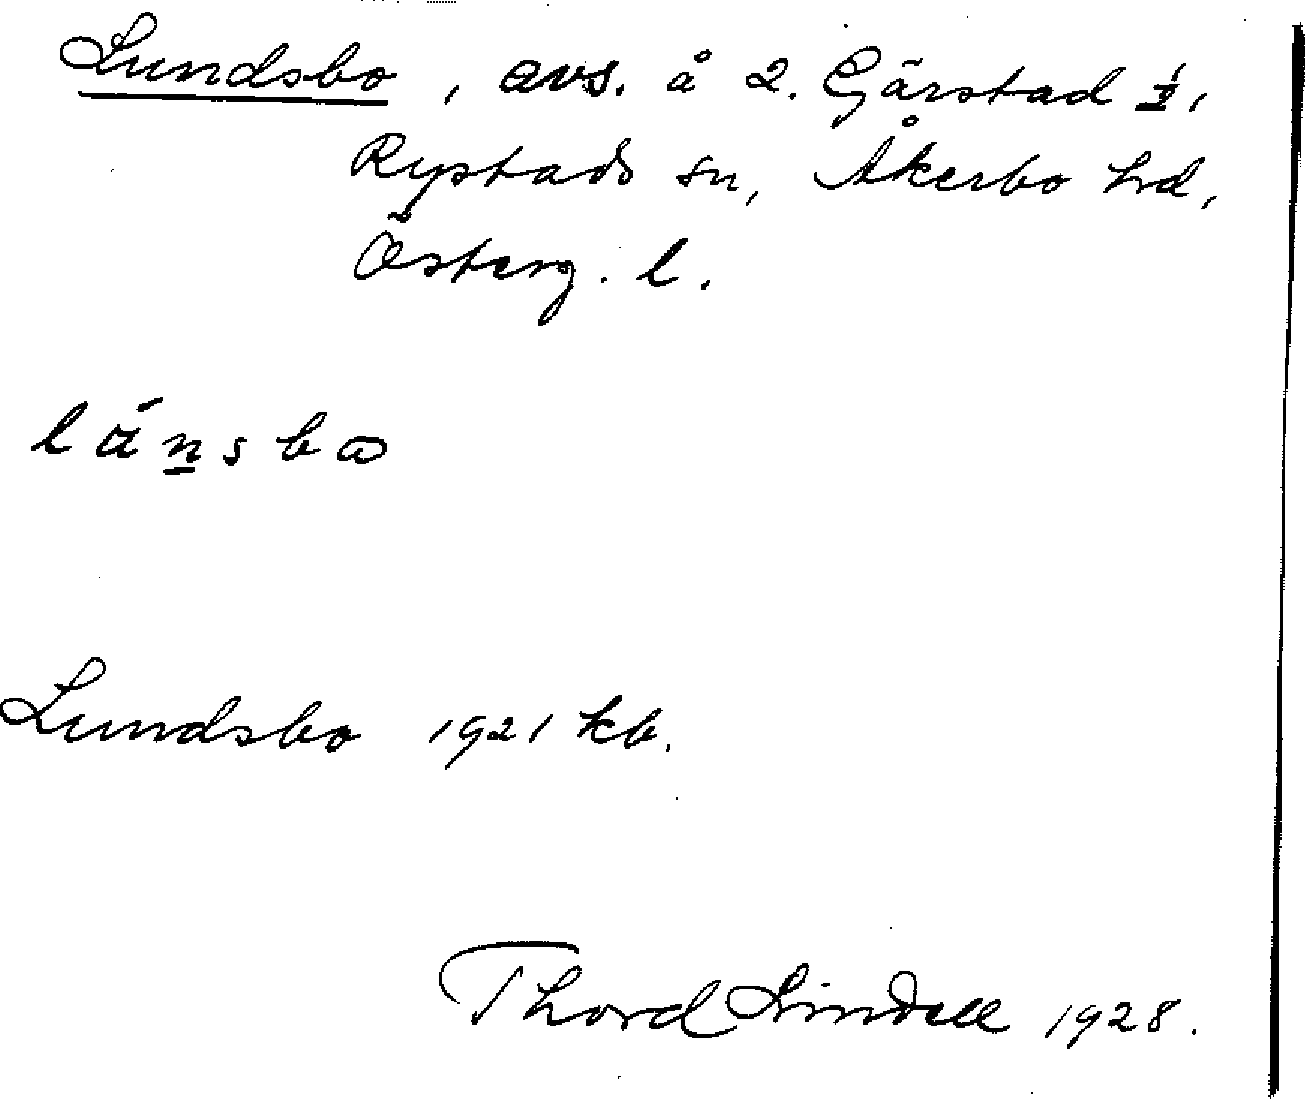 Lundsbo, avs. å 2. Gärstad ½,
Rystads sn, Åkerbo hd,
Österg. l.
länsbω
Lundsbo 1921 kb.
Thord Lindell 1928.